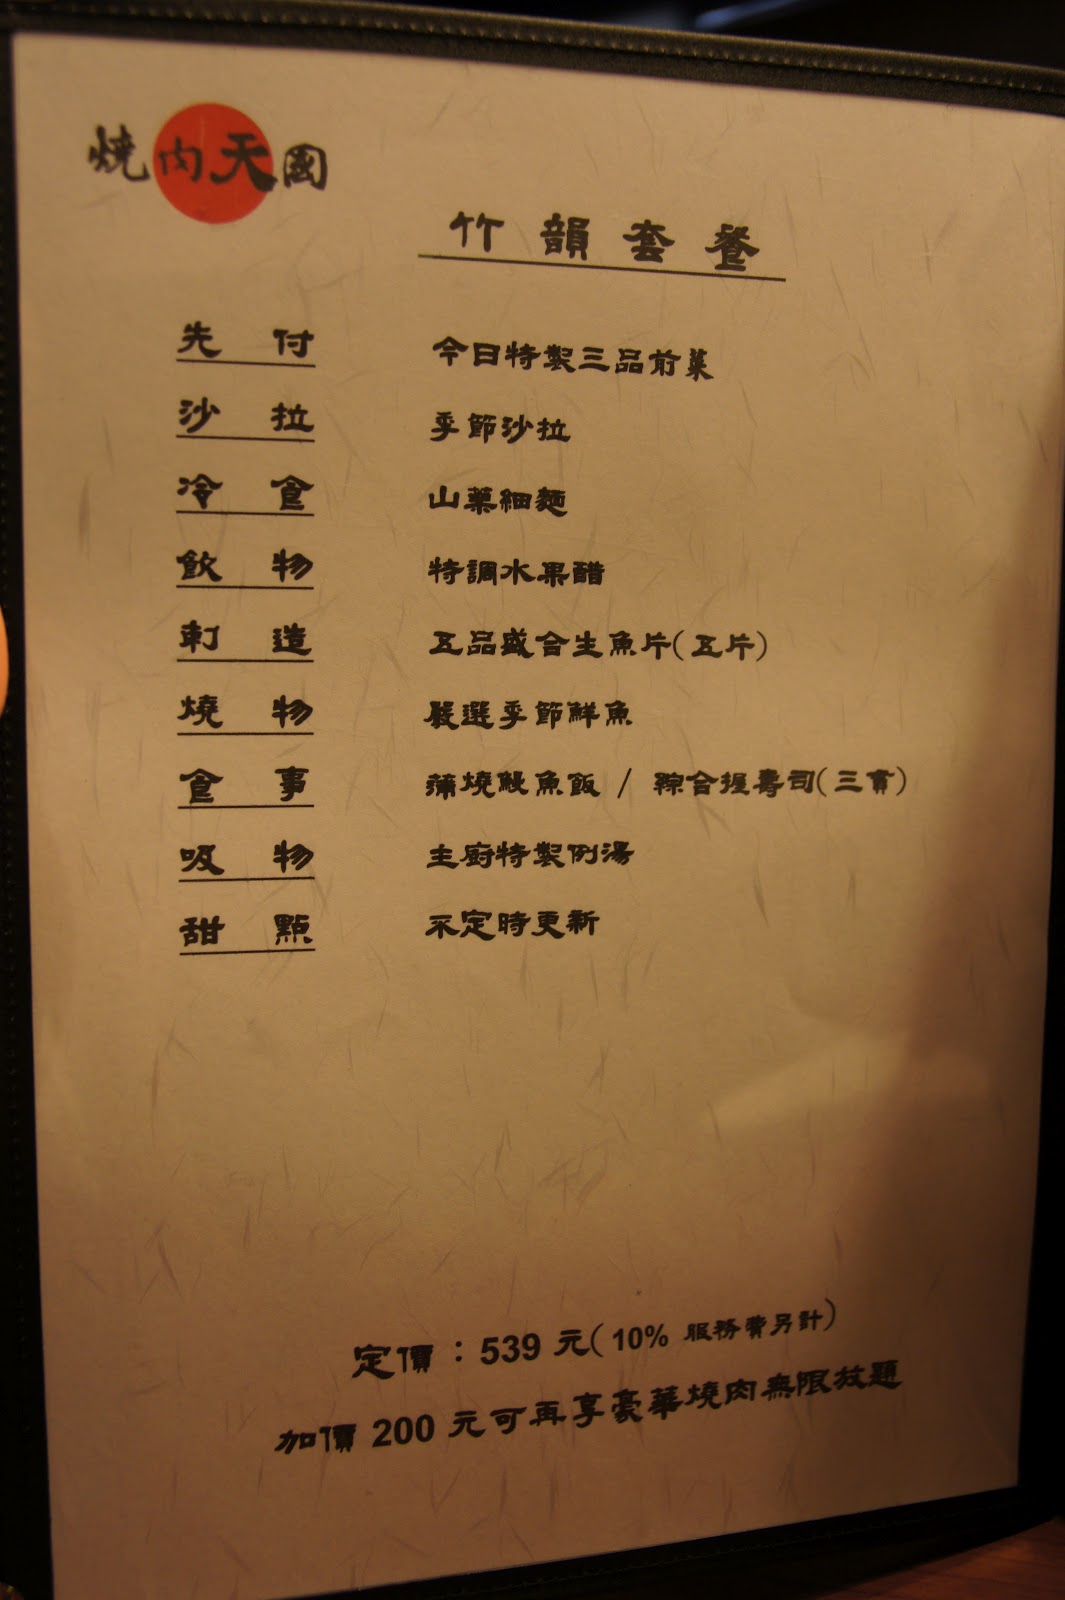 燒肉天國
竹韻套餐
先付 今日特製三品前菜
沙拉 季節沙拉
冷食 山藥細麵
飲物 特調水果醋
刺造 五品盛合生魚片(五片)
燒物 嚴選季節鮮魚
食事 蒲燒鰻魚飯 / 綜合握壽司(三貫)
吸物 主廚特製例湯
甜點 不定時更新
定價：539 元(10% 服務費另計)
加價 200 元可再享豪華燒肉無限放題